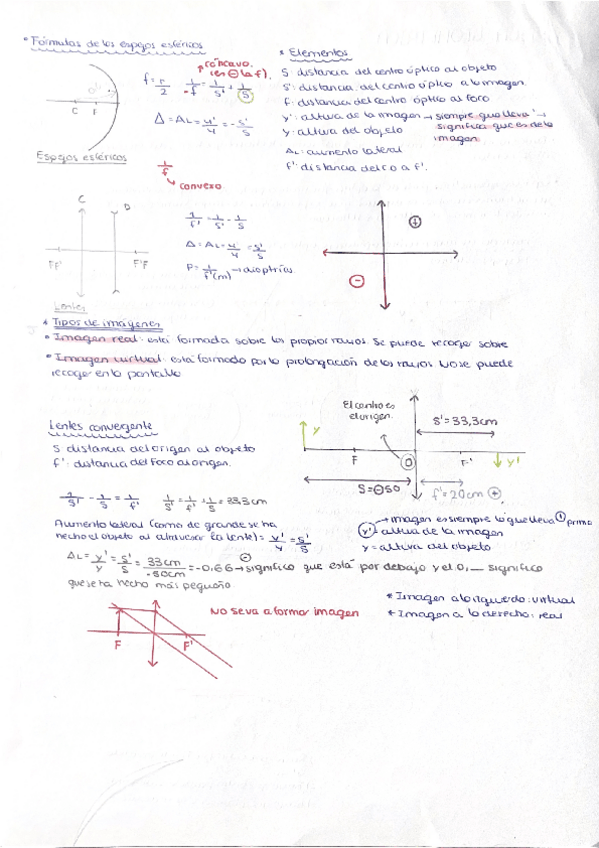 * Fórmulas de los espejos esféricos
cóncavo.
(en ⊖ la f).
f = r/2   1/-f = 1/s' + 1/s
Δ = AL = y'/y = -s'/s
C F
Espejos esféricos
1/f
↳ convexo
* Elementos
S: distancia del centro óptico al objeto
S': distancia del centro óptico a la imagen.
f: distancia del centro óptico al foco
y': altura de la imagen → siempre que lleva ' →
significa que es de la
imagen.
y: altura del objeto
AL: aumento lateral
f': distancia del c.o a f'.
C
D
FF' F'F
Lentes
1/f' = 1/s' - 1/s
Δ = AL = y'/y = s'/s
P = 1/f'(m) → dioptrías
⊕
⊖
* Tipos de imágenes
• Imagen real: está formada sobre los propios rayos. Se puede recoger sobre
• Imagen virtual: está formado por la prolongación de los rayos. No se puede
recoger en la pantalla
Lentes convergente
S: distancia del origen al objeto
f': distancia del foco al origen.
El centro es
el origen.
S' = 33,3cm
y
F
O
F'
y'
S = ⊖50
f' = 20cm ⊕
1/s' - 1/s = 1/f'   1/s' = 1/f' + 1/s = 33,3cm
Aumento lateral (como de grande se ha
hecho el objeto al atravesar la lente) = y'/y = s'/s
→ imagen es siempre lo que lleva ' prima
y' = altura de la imagen
y = altura del objeto
ΔL = y'/y = s'/s = 33cm/-50cm = -0,66 → significa que está por debajo y el 0,__ significa
que se ha hecho más pequeño.
F
F'
No se va a formar imagen
* Imagen a la izquierda: virtual
* Imagen a la derecha: real